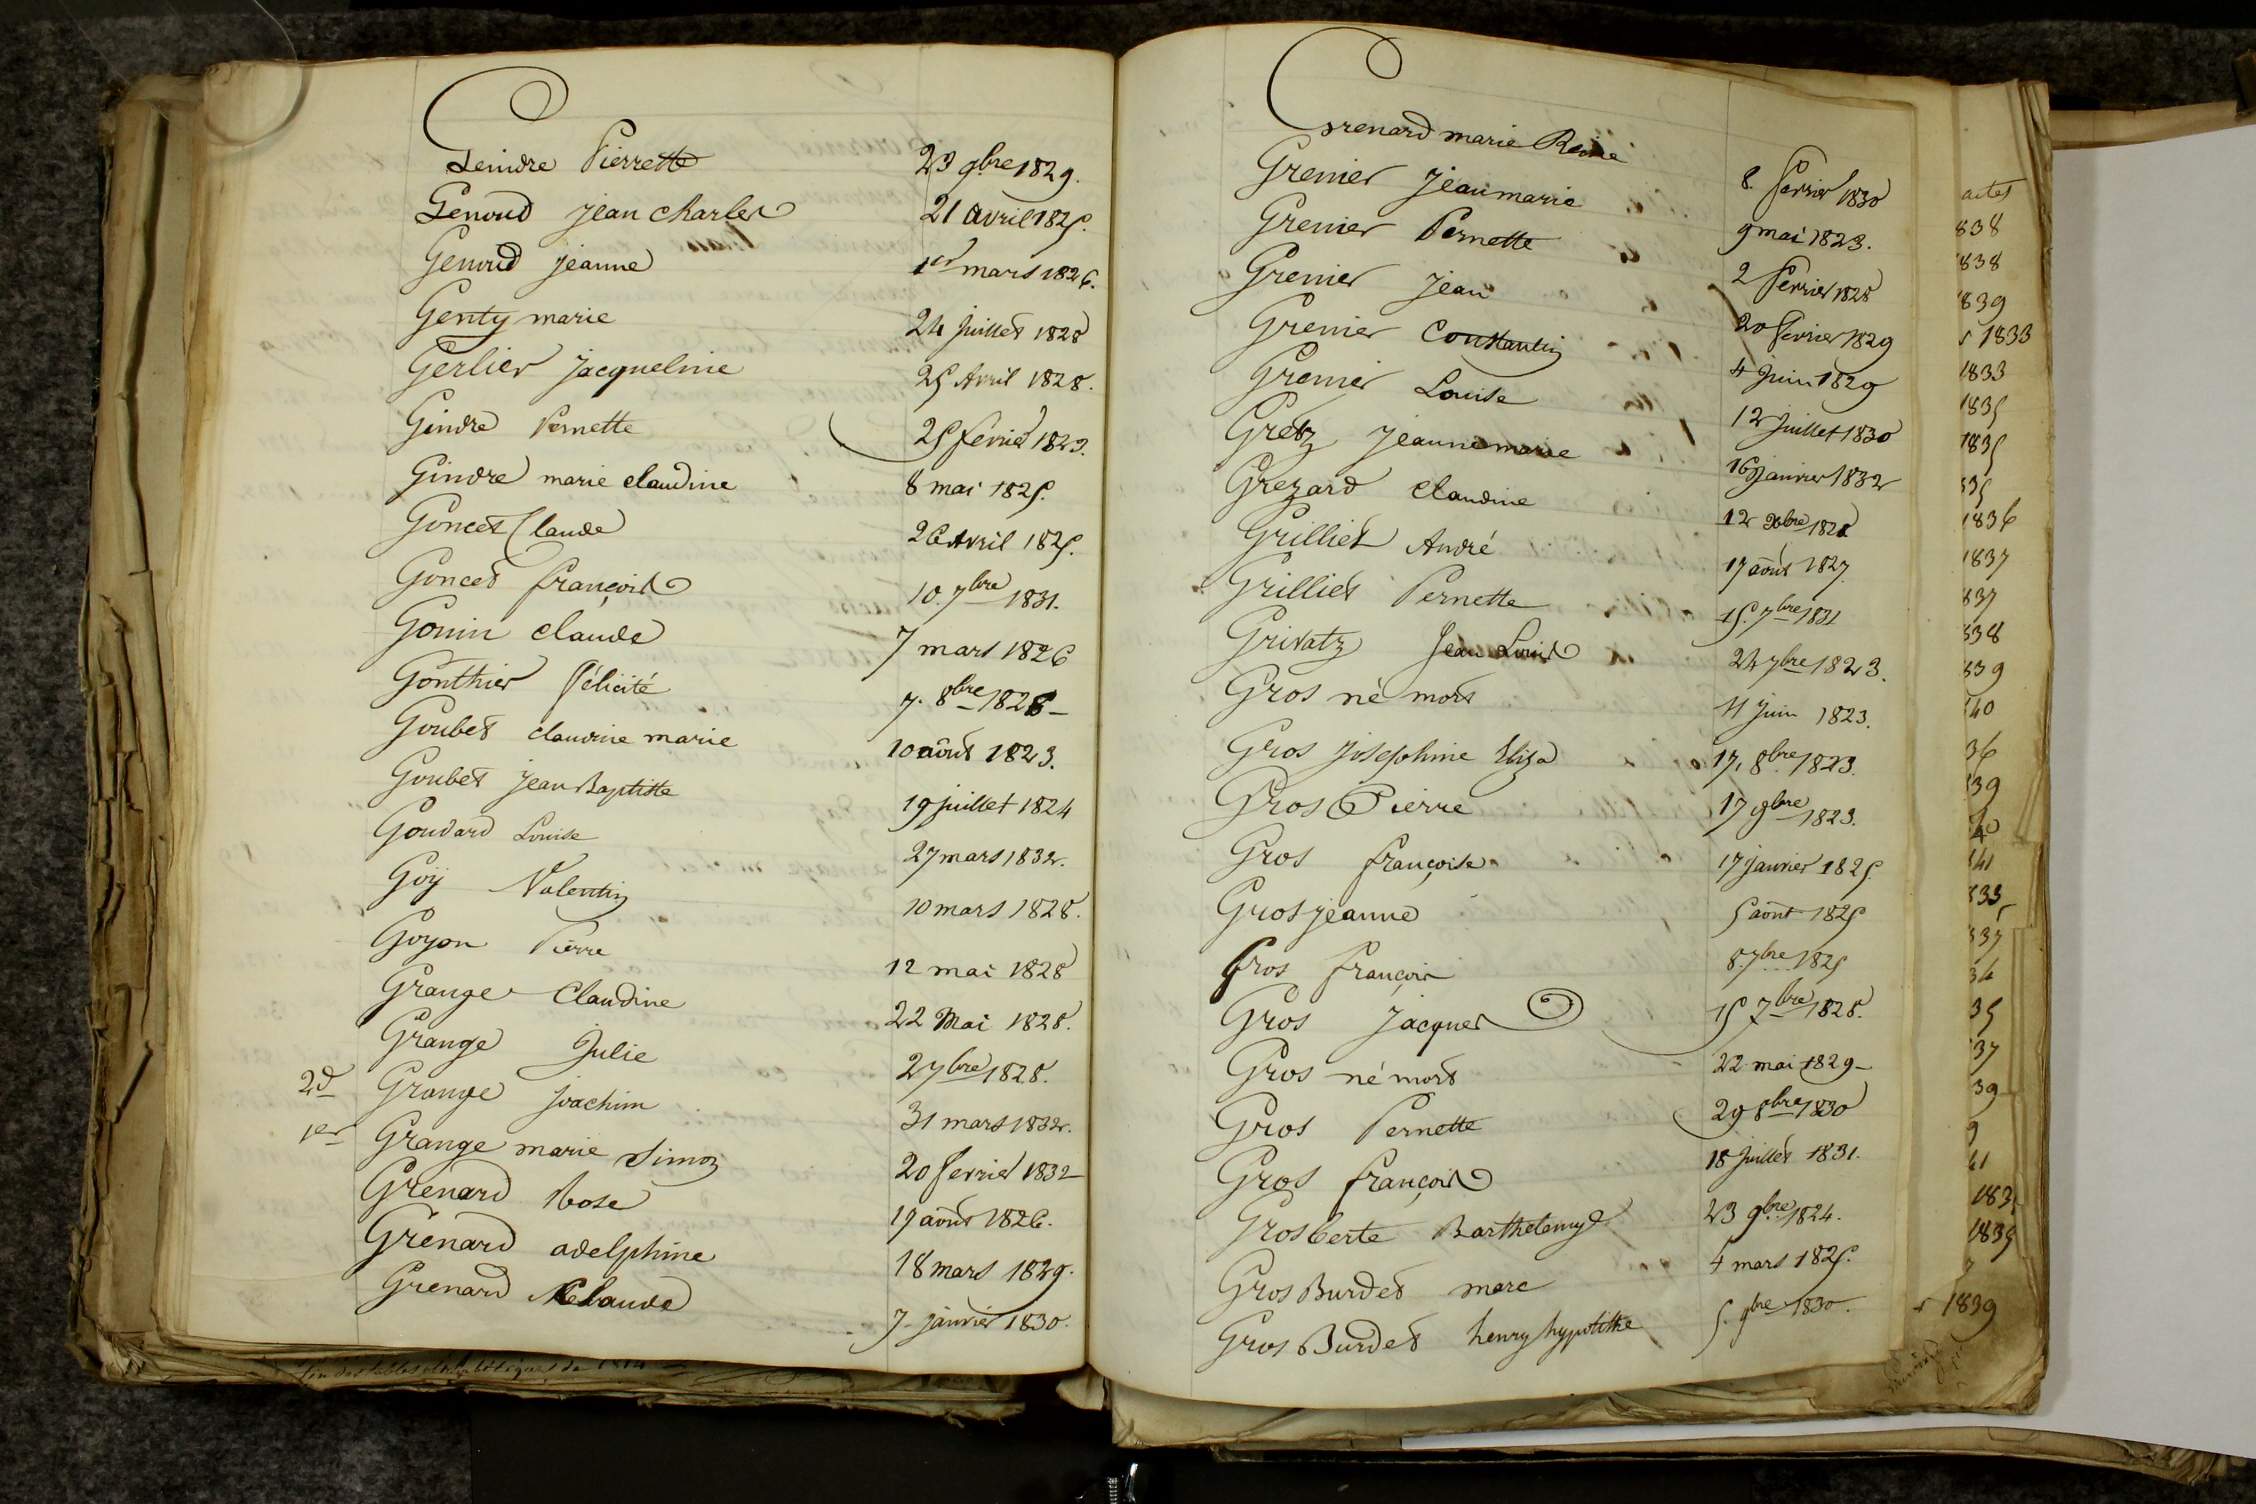 Geindre Pierrette 23 9bre 1829.
Genoud jean charles 21 avril 1825.
Genoud jeanne 1er mars 1826.
Genty marie 24 juillet 1828
Gerlier jacqueline 25 Avril 1828.
Gindre Pernette 25 fevrier 1823.
Gindre marie claudine 8 mai 1825.
Goncet Claude 26 Avril 1825.
Goncet françois 10. 7bre 1831.
Gonin claude 7 mars 1826
Gonthier félicité 7. 8bre 1828
Goubet claudine marie 10 août 1823.
Goubet jean Baptiste 19 juillet 1824
Goudard Louise 27 mars 1832.
Goÿ Valentin 10 mars 1828.
Goyon Pierre 12 mai 1828
Grange Claudine 22 Mai 1828.
Grange Julie 2 7bre 1828.
2d Grange joachim 31 mars 1832.
1er Grange marie Simon 20 fevrier 1832
Grenard Rose 19 août 1826.
Grenard adelphine 18 mars 1829.
Grenard Claude 7 janvier 1830.
Grenard marie Reine 8. fevrier 1830
Grenier jean marie 9 mai 1823.
Grenier Pernette 2 fevrier 1828
Grenier jean 20 fevrier 1829
Grenier Constantin 4 juin 1829
Grenier Louise 12 juillet 1830
Gretz jeanne marie 16 janvier 1832
Grezard claudine 12 xbre 1828
Grilliet André 17 août 1827
Grilliet Pernette 15. 7bre 1831
Grivatz Jean Louis 24 7bre 1823.
Gros né mort 11 juin 1823.
Gros josephine Eliza 17. 8bre 1823.
Gros Pierre 17 9bre 1823.
Gros françoise 17 janvier 1825.
Gros jeanne 5 août 1825
Gros françois 8. 7bre 1825
Gros jacques 15 7bre 1828.
Gros né mort 22 mai 1829
Gros Pernette 29 8bre 1830
Gros françois 18 juillet 1831.
Grosberte Barthelemy 23 9bre 1824.
Gros Burdet marc 4 mars 1825.
Gros Burdet henry hypolithe 5. 9bre 1830.
actes
838
838
839
1833
1833
1835
1835
35
1836
1837
837
838
839
40
36
39
41
37
34
35
37
39
9
41
183
1835
1839